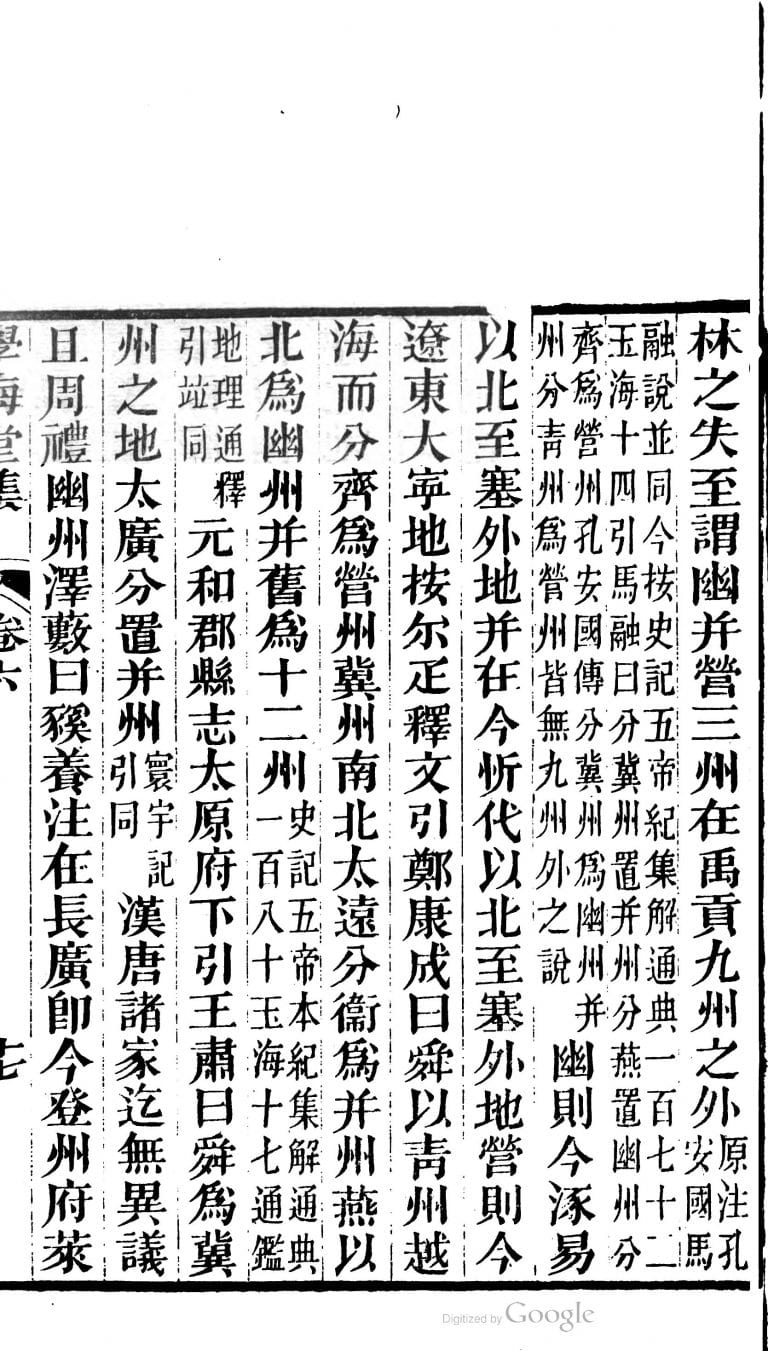 林之失至謂幽并營三州在禹貢九州之外原注孔
安國馬
融說並同今按史記五帝紀集解通典一百七十二
玉海十四引馬融曰分冀州置并州分燕置幽州分
齊爲營州孔安國傳分冀州爲幽州并
州分靑州爲營州皆無九州外之說
幽則今涿易
以北至塞外地并在今忻代以北至塞外地營則今
遼東大寕地按尔疋釋文引鄭康成曰舜以靑州越
海而分齊爲營州冀州南北太遠分衞爲并州燕以
北爲幽州并舊爲十二州史記五帝本紀集解通典
一百八十玉海十七通鑑
地理通釋
引竝同
元和郡縣志太原府下引王肅曰舜爲冀
州之地太廣分置并州寰宇記
引同
漢唐諸家迄無異議
且周禮幽州澤藪曰貕養注在長廣卽今登州府萊
學海堂集 卷六 十七
Digitized by Google